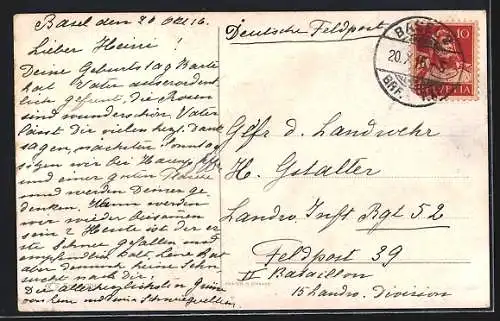 Basel den 20 Okt. 16.
Lieber Heini!
Deine Geburtstag Karte
hat Vater ausserordent
lich gefreut, die Rosen
sind wunderschön. Vater
lässt dir vielen herzl. Dank
sagen, nächsten Sonntag
sitzen wir bei
und einer guten
und werden Deiner ge
denken. Wann werden
wir wieder beisamen
sein? Heute ist der er
ste Schnee gefallen und
empfindlich kalt,
aber dennoch keine Sehn
sucht nach dir!
Die allerherzlichsten Grüsse
von
Deutsche Feldpost
BASEL
20.X.16
BRF.
10
HELVETIA
Gefr d. Landwehr
H. Gstalter
Landw. Inft Rgt 52
Feldpost 39
II Bataillon
15 Landw. Division